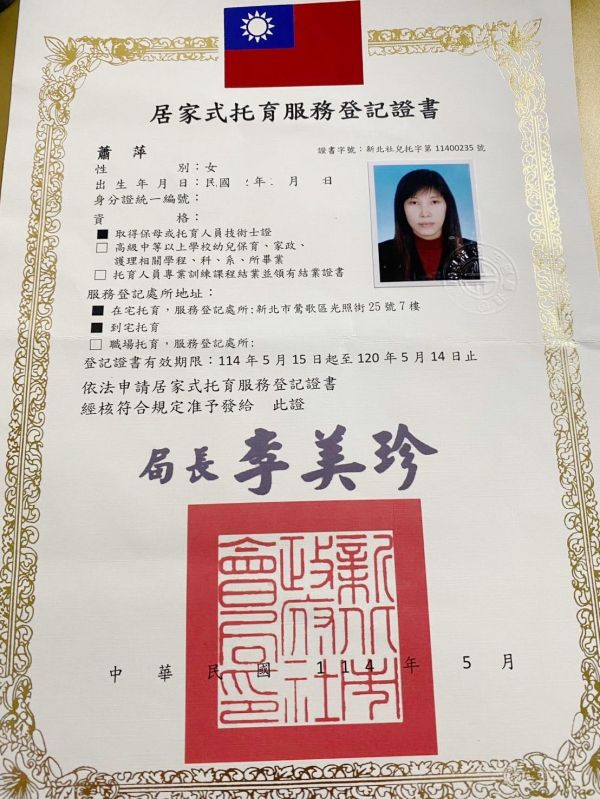 居家式托育服務登記證書
證書字號：新北社兒托字第11400235號
蕭 萍
性 別：女
出生年月日：民國 年 月 日
身分證統一編號：
資 格：
■ 取得保母或托育人員技術士證
□ 高級中等以上學校幼兒保育、家政、
護理相關學程、科、系、所畢業
□ 托育人員專業訓練課程結業並領有結業證書
服務登記處所地址：
■ 在宅托育，服務登記處所:新北市鶯歌區光照街25號7樓
■ 到宅托育
□ 職場托育，服務登記處所:
登記證書有效期限：114年5月15日起至120年5月14日止
依法申請居家式托育服務登記證書
經核符合規定准予發給 此證
局長 李美珍
新北市政府社會局印
中華民國 114 年 5 月